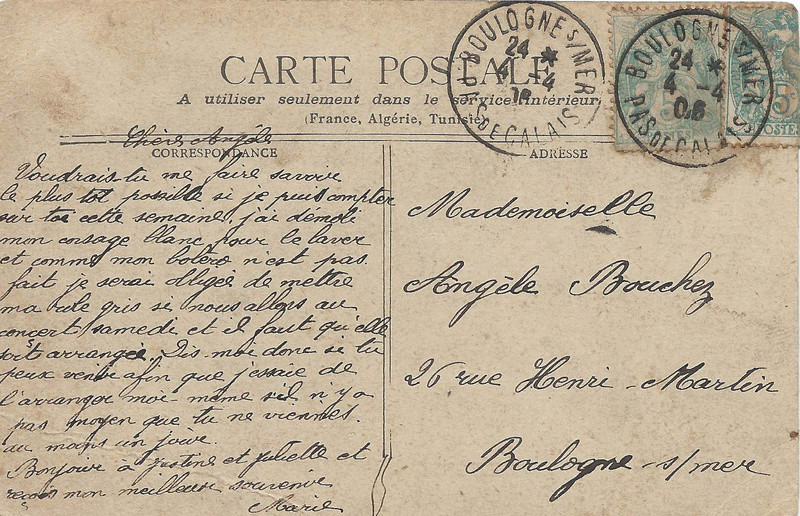 CARTE POSTALE
A utiliser seulement dans le service intérieur
(France, Algérie, Tunisie)
BOULOGNE S/MER
24 *
4 -4
PAS DE CALAIS
BOULOGNE S/MER
24 *
4 -4
06
PAS DE CALAIS
5
POSTES
CORRESPONDANCE
ADRESSE
Chère Angèle
Voudrais-tu me faire savoir
le plus tot possible si je puis compter
sur toi cette semaine, j'ai démoli
mon corsage blanc pour le laver
et comme mon boléro n'est pas
fait je serai obligée de mettre
ma robe gris si nous allons au
concert samedi et il faut qu'elle
soit arrangée. Dis moi donc si tu
peux venir afin que j'essaie de
l'arranger moi-meme s'il n'y a
pas moyen que tu ne viennes.
au moins un jour.
Bonjour à Justine et Juliette et
reçois mon meilleur souvenir
Marie
Mademoiselle
Angèle Bouchez
26 rue Henri-Martin
Boulogne-s/mer